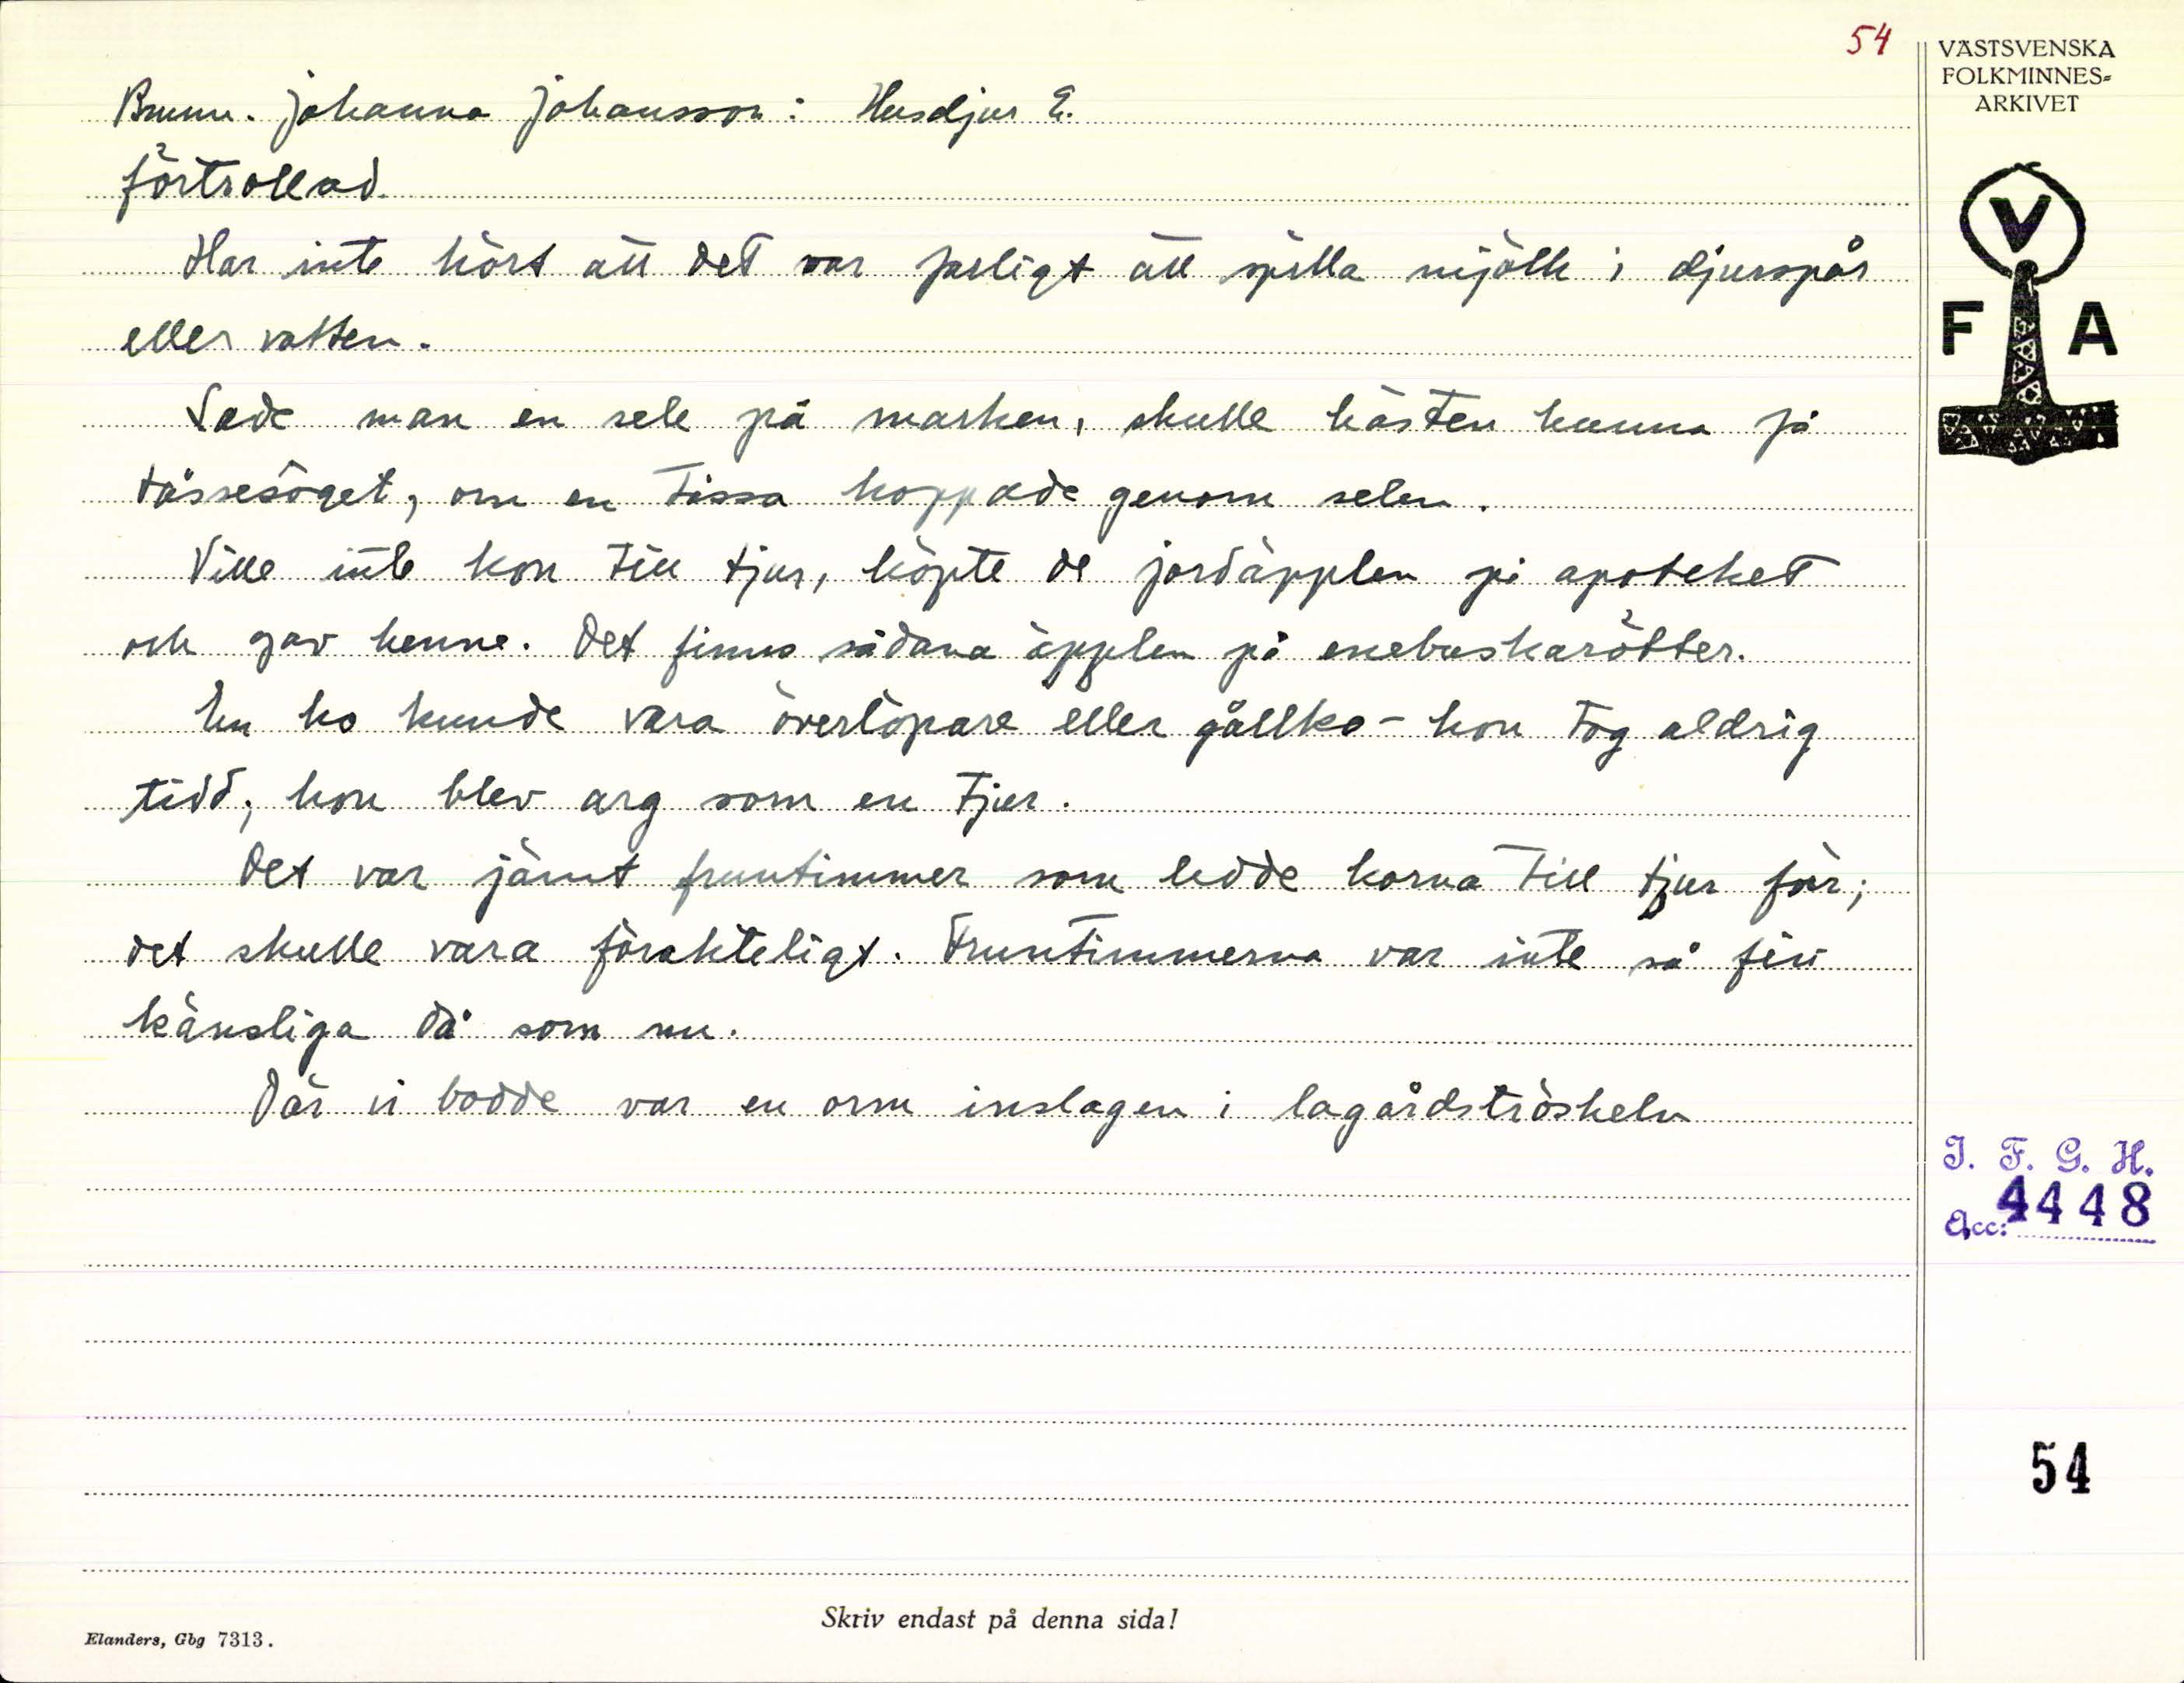 54
VÄSTSVENSKA
FOLKMINNES-
ARKIVET
Brunn. Johanna Johansson: Husdjur 2.
förtrollad.
Har inte hört att det var farligt att spilla mjölk i djurspår
eller vatten.
Lade man en sele på marken, skulle hästen kunna få
tåssesöget, om en tåssa hoppade genom selen.
Ville inte kon till tjur, köpte de jordäpplen på apoteket
och gav henne. Det finns sådana äpplen på enebuskarötter.
En ko kunde vara överlöpare eller gållko - hon tog aldrig
tidd, hon blev arg som en tjur.
Det var jämt fruntimmer som ledde korna till tjur förr;
det skulle vara förakteligt. Fruntimmerna var inte så fin
känsliga då som nu.
Där vi bodde var en orm inslagen i lagårdströskeln
V
F A
I. F. G. H.
Acc: 4448
54
Skriv endast på denna sida!
Elanders, Gbg 7313.